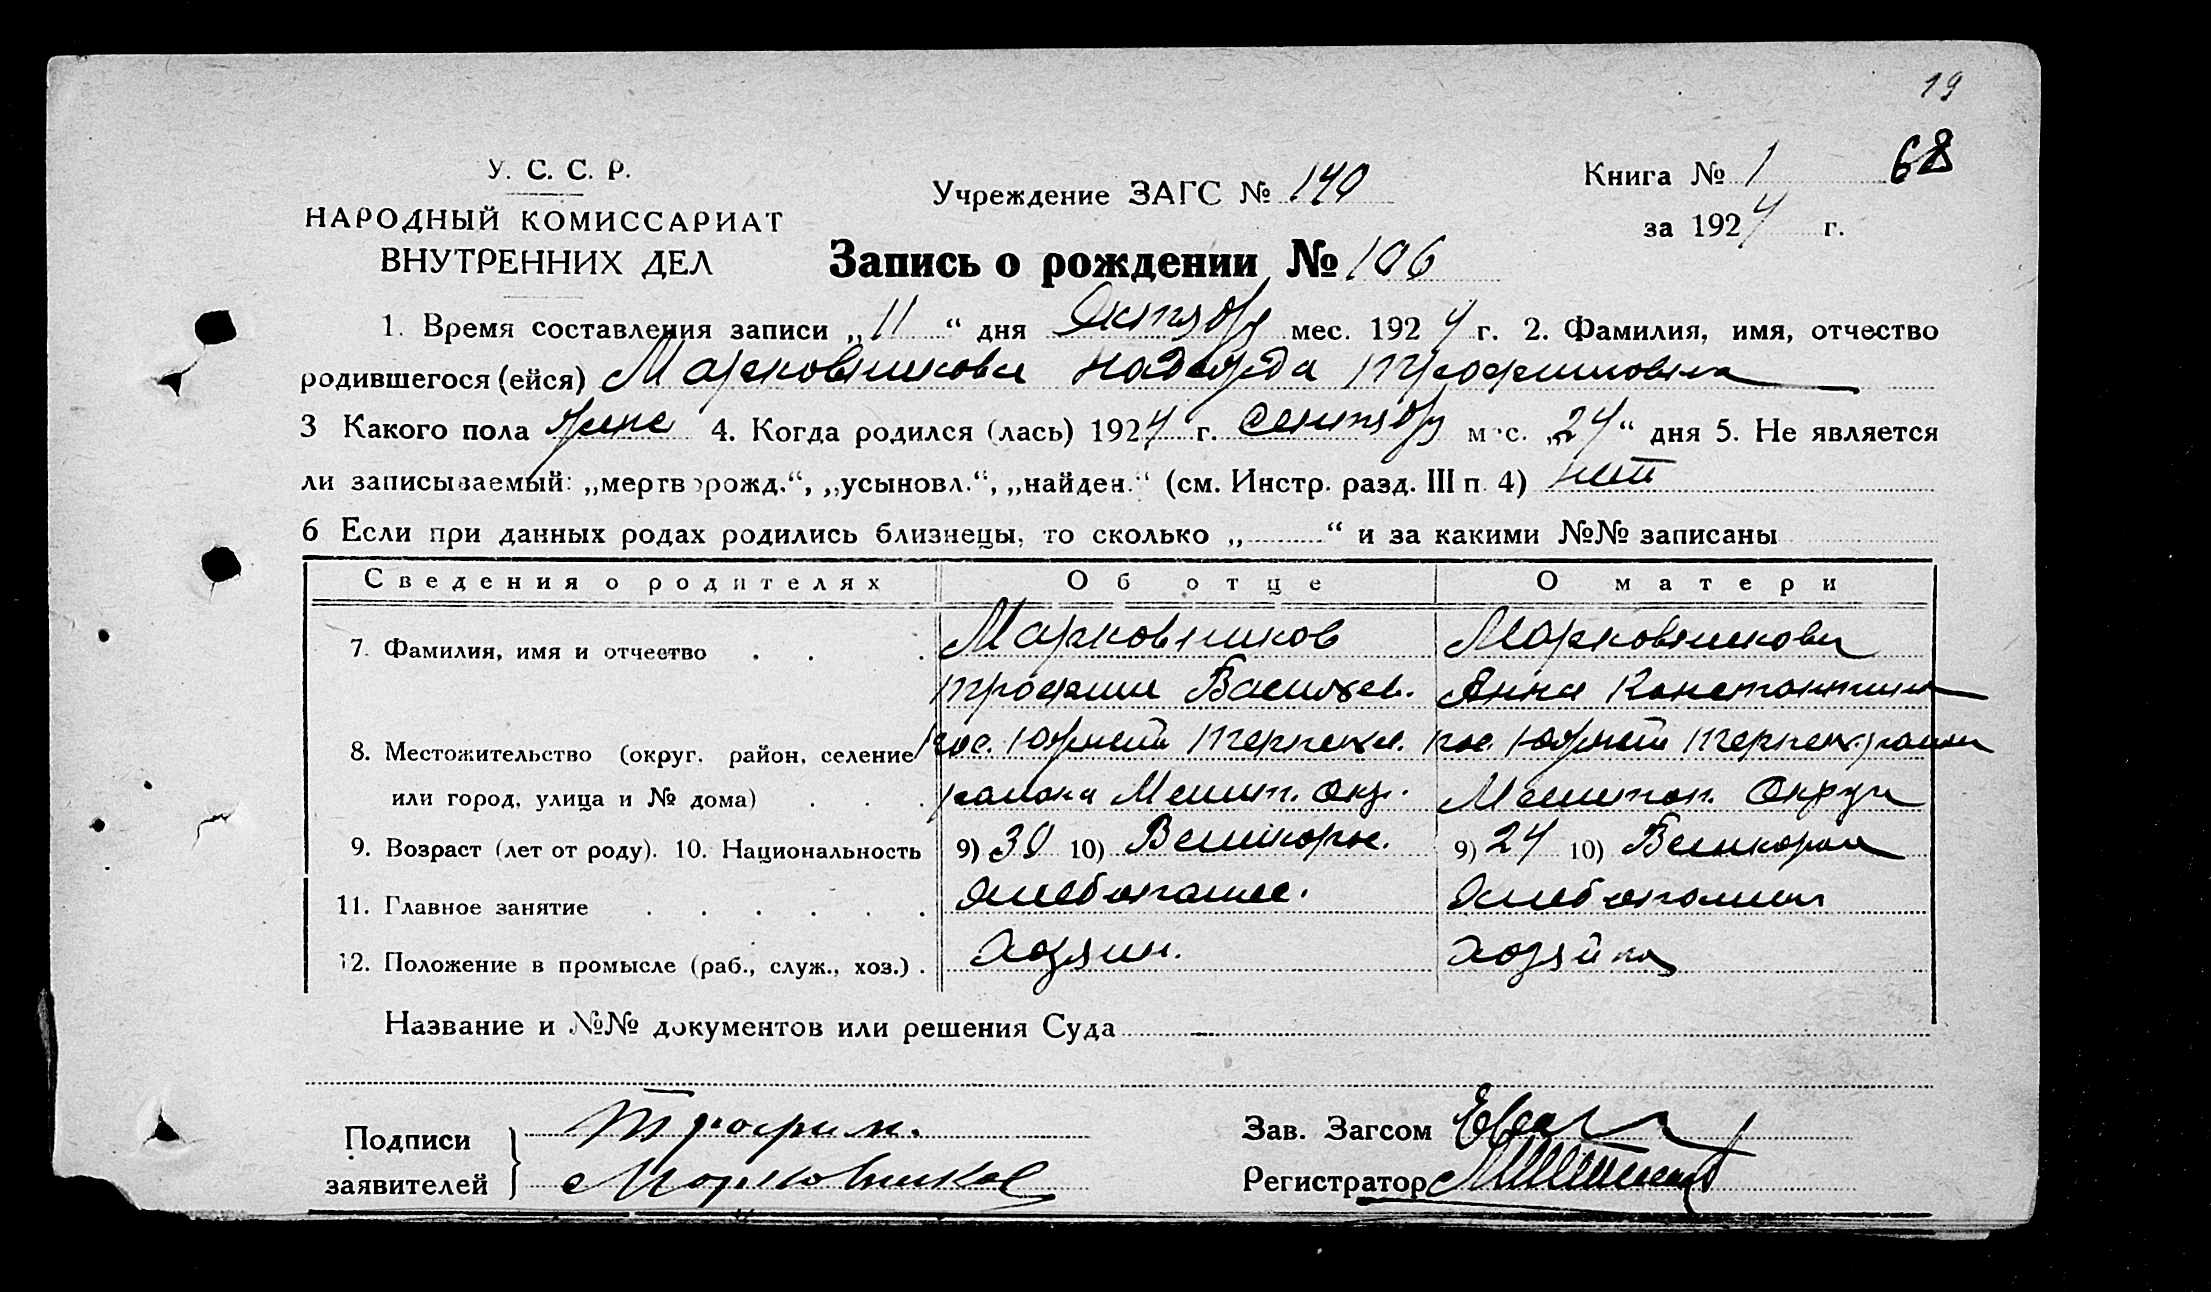 19
У. С. С. Р.
НАРОДНЫЙ КОМИССАРИАТ
ВНУТРЕННИХ ДЕЛ
Учреждение ЗАГС № 140
Книга № 1 68
за 1924 г.
Запись о рождении № 106
1. Время составления записи „11“ дня Октябр мес. 1924 г. 2. Фамилия, имя, отчество
родившегося (ейся) Марковникова Надежда Трофимовна
3 Какого пола женс 4. Когда родился (лась) 1924 г. Сентябр мес. „24“ дня 5. Не является
ли записываемый: „мертворожд.“, „усыновл.“, „найден.“ (см. Инстр. разд. III п. 4) нет
6 Если при данных родах родились близнецы, то сколько „ “ и за какими №№ записаны
Сведения о родителях Об отце О матери
7. Фамилия, имя и отчество Марковников Марковникова
Трофим Васильев. Анна Константин
8. Местожительство (округ, район, селение пос. Терпен. пос. Терпен. район
или город, улица и № дома) района Мелит. Окр. Мелитоп. Округа
9. Возраст (лет от роду). 10. Национальность 9) 30 10) Великорос. 9) 24 10) Великорос
11. Главное занятие Хлебопашес. Хлебопашес
12. Положение в промысле (раб., служ., хоз.) Хозяин. Хозяйка
Название и №№ документов или решения Суда
Подписи Трофим. Зав. Загсом
заявителей Марковников Регистратор